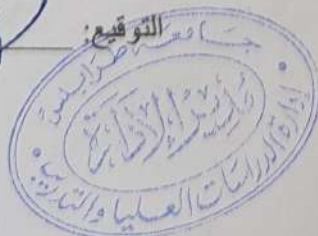 التوقيع:
جامعة طرابلس
مدير الإدارة
إدارة الدراسات العليا والتدريب